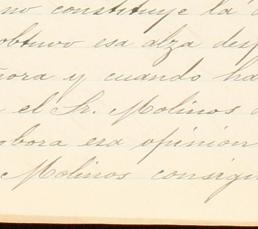 no constituye la
obtuvo esa alza des
ora y cuando ha
el Sr. Molinos
bora era opinión
Molinos consig